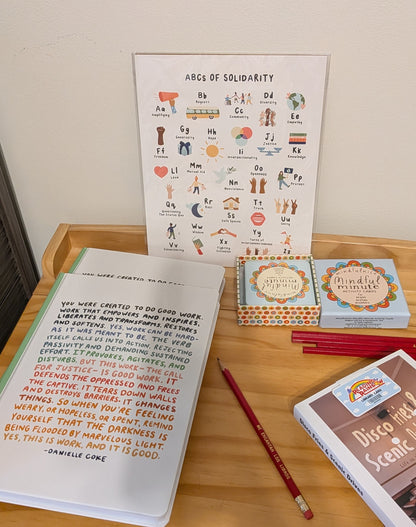 ABCs OF SOLIDARITY
Aa
Amplifying
Bb
Respect
Cc
Community
Dd
Diversity
Ee
Empathy
Ff
Freedom
Gg
Generosity
Hh
Hope
Ii
Intersectionality
Jj
Justice
Kk
Knowledge
Ll
Love
Mm
Mutual Aid
Nn
Nonviolence
Oo
Openness
Pp
Protest
Qq
Questioning
The Status Quo
Rr
Rest
Ss
Safe Spaces
Tt
Trust
Uu
Unity
Vv
Ww
Xx
Yy
Zz
YOU WERE CREATED TO DO GOOD
YOU WERE CREATED TO DO GOOD WORK.
WORK THAT EMPOWERS AND INSPIRES,
LIBERATES AND TRANSFORMS, RESTORES
AND SOFTENS. YES, WORK CAN BE HARD,
AS IT WAS MEANT TO BE. THE VERB
ITSELF CALLS US INTO ACTION, REJECTING
PASSIVITY AND DEMANDING SUSTAINED
EFFORT. IT PROVOKES, AGITATES, AND
DISTURBS. BUT THIS WORK—THE CALL
FOR JUSTICE—IS GOOD WORK. IT
DEFENDS THE OPPRESSED AND FREES
THE CAPTIVE. IT TEARS DOWN WALLS
AND DESTROYS BARRIERS. IT CHANGES
THINGS. SO WHEN YOU'RE FEELING
WEARY, OR HOPELESS, OR SPENT, REMIND
YOURSELF THAT THE DARKNESS IS
BEING FLOODED BY MARVELOUS LIGHT.
YES, THIS IS WORK. AND IT IS GOOD.
-DANIELLE COKE
mindful
minute
mindfulness
Mindful
minute
Disco Fries & Scenic Drives
Disco Fries &
Scenic D